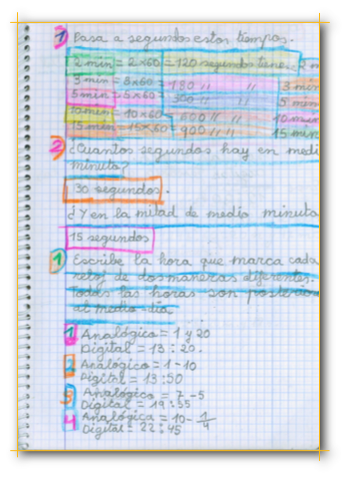 1 Pasa a segundos estos tiempos.
2 min = 2x60 = 120 segundos tiene
3 min = 3x60 = 180 " " 3 min
5 min = 5x60 = 300 " " 5 min
10 min = 10x60 = 600 " " 10 min
15 min = 15x60 = 900 " " 15 min
2 ¿Cuantos segundos hay en medi
minuto?
30 segundos.
¿Y en la mitad de medio minuto
15 segundos
1 Escribe la hora que marca cada
reloj de dos maneras diferentes.
Todas las horas son posterior
al medio-dia.
1 Analógico = 1 y 20
Digital = 13:20.
2 Analógico = 1-10
Digital = 13:50
3 Analógico = 7-5
Digital = 19:55
4 Analógica = 10-1/4
Digital = 22:45